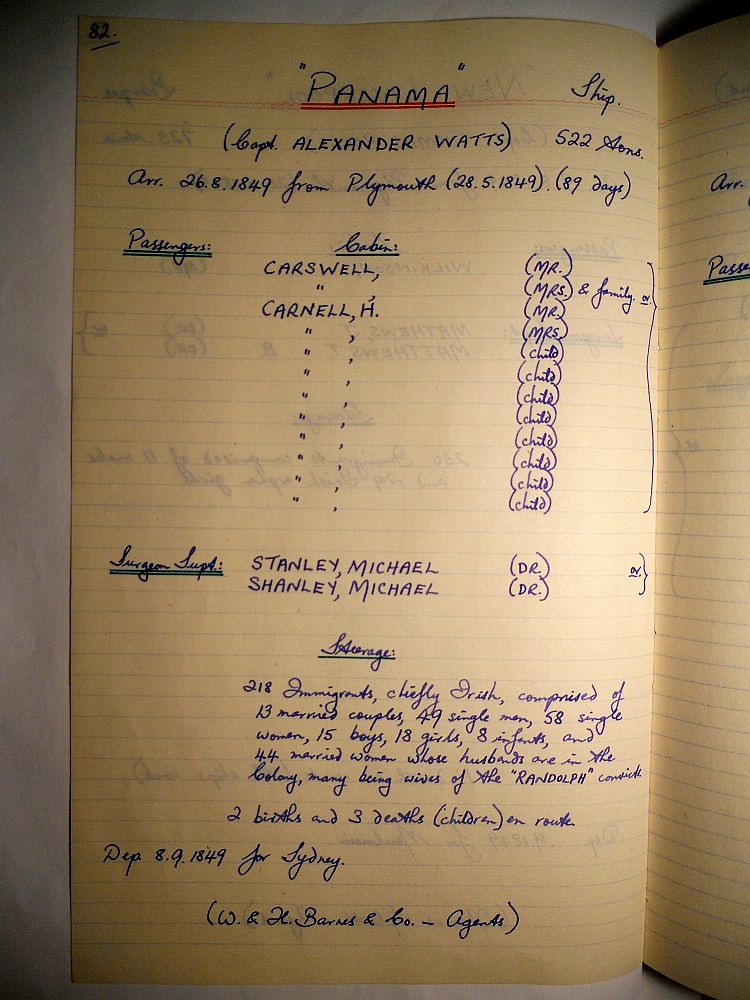 82.
"PANAMA" Ship.
(Capt. ALEXANDER WATTS) 522 tons.
Arr. 26.8.1849 from Plymouth (28.5.1849). (89 days)
Passengers: Cabin:
CARSWELL, (MR.)
" , (MRS.) & family. or
CARNELL, H. (MR.)
" , (MRS.)
" , (child)
" , (child)
" , (child)
" , (child)
" , (child)
" , (child)
" , (child)
" , (child)
Surgeon Supt.: STANLEY, MICHAEL (DR.) or
SHANLEY, MICHAEL (DR.)
Steerage:
218 Immigrants, chiefly Irish, comprised of
13 married couples, 49 single men, 58 single
women, 15 boys, 18 girls, 8 infants, and
44 married women whose husbands are in the
Colony, many being wives of the "RANDOLPH" convicts
2 births and 3 deaths (children) en route.
Dep. 8.9.1849 for Sydney.
(W. & H. Barnes & Co. – Agents)
Arr.